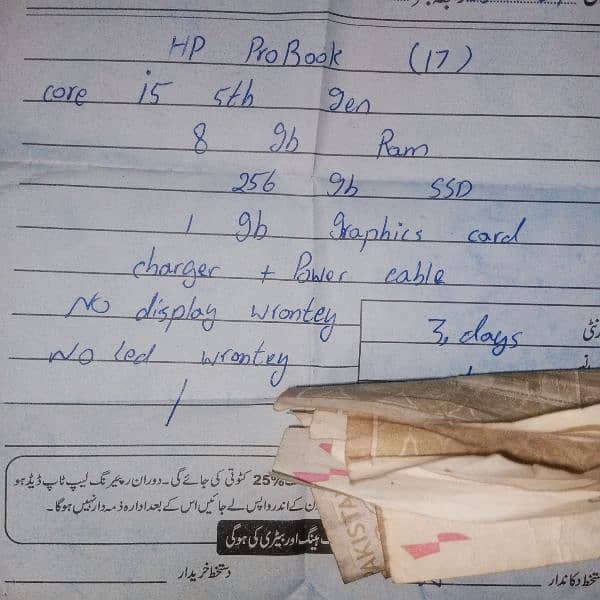 HP ProBook (17)
core i5 5th gen
8 gb Ram
256 gb SSD
1 gb graphics card
charger + Power cable
NO display wrontey
3, days
NO led wrontey
25% کٹوتی کی جائے گی۔ دوران ریپئرنگ لیپ ٹاپ ڈیڈ ہو
کے اندر واپس لے جائیں اس کے بعد ادارہ ذمہ دار نہیں ہوگا۔
ہینگ اور بیٹری کی ہوگی
دستخط خریدار
دستخط دکاندار